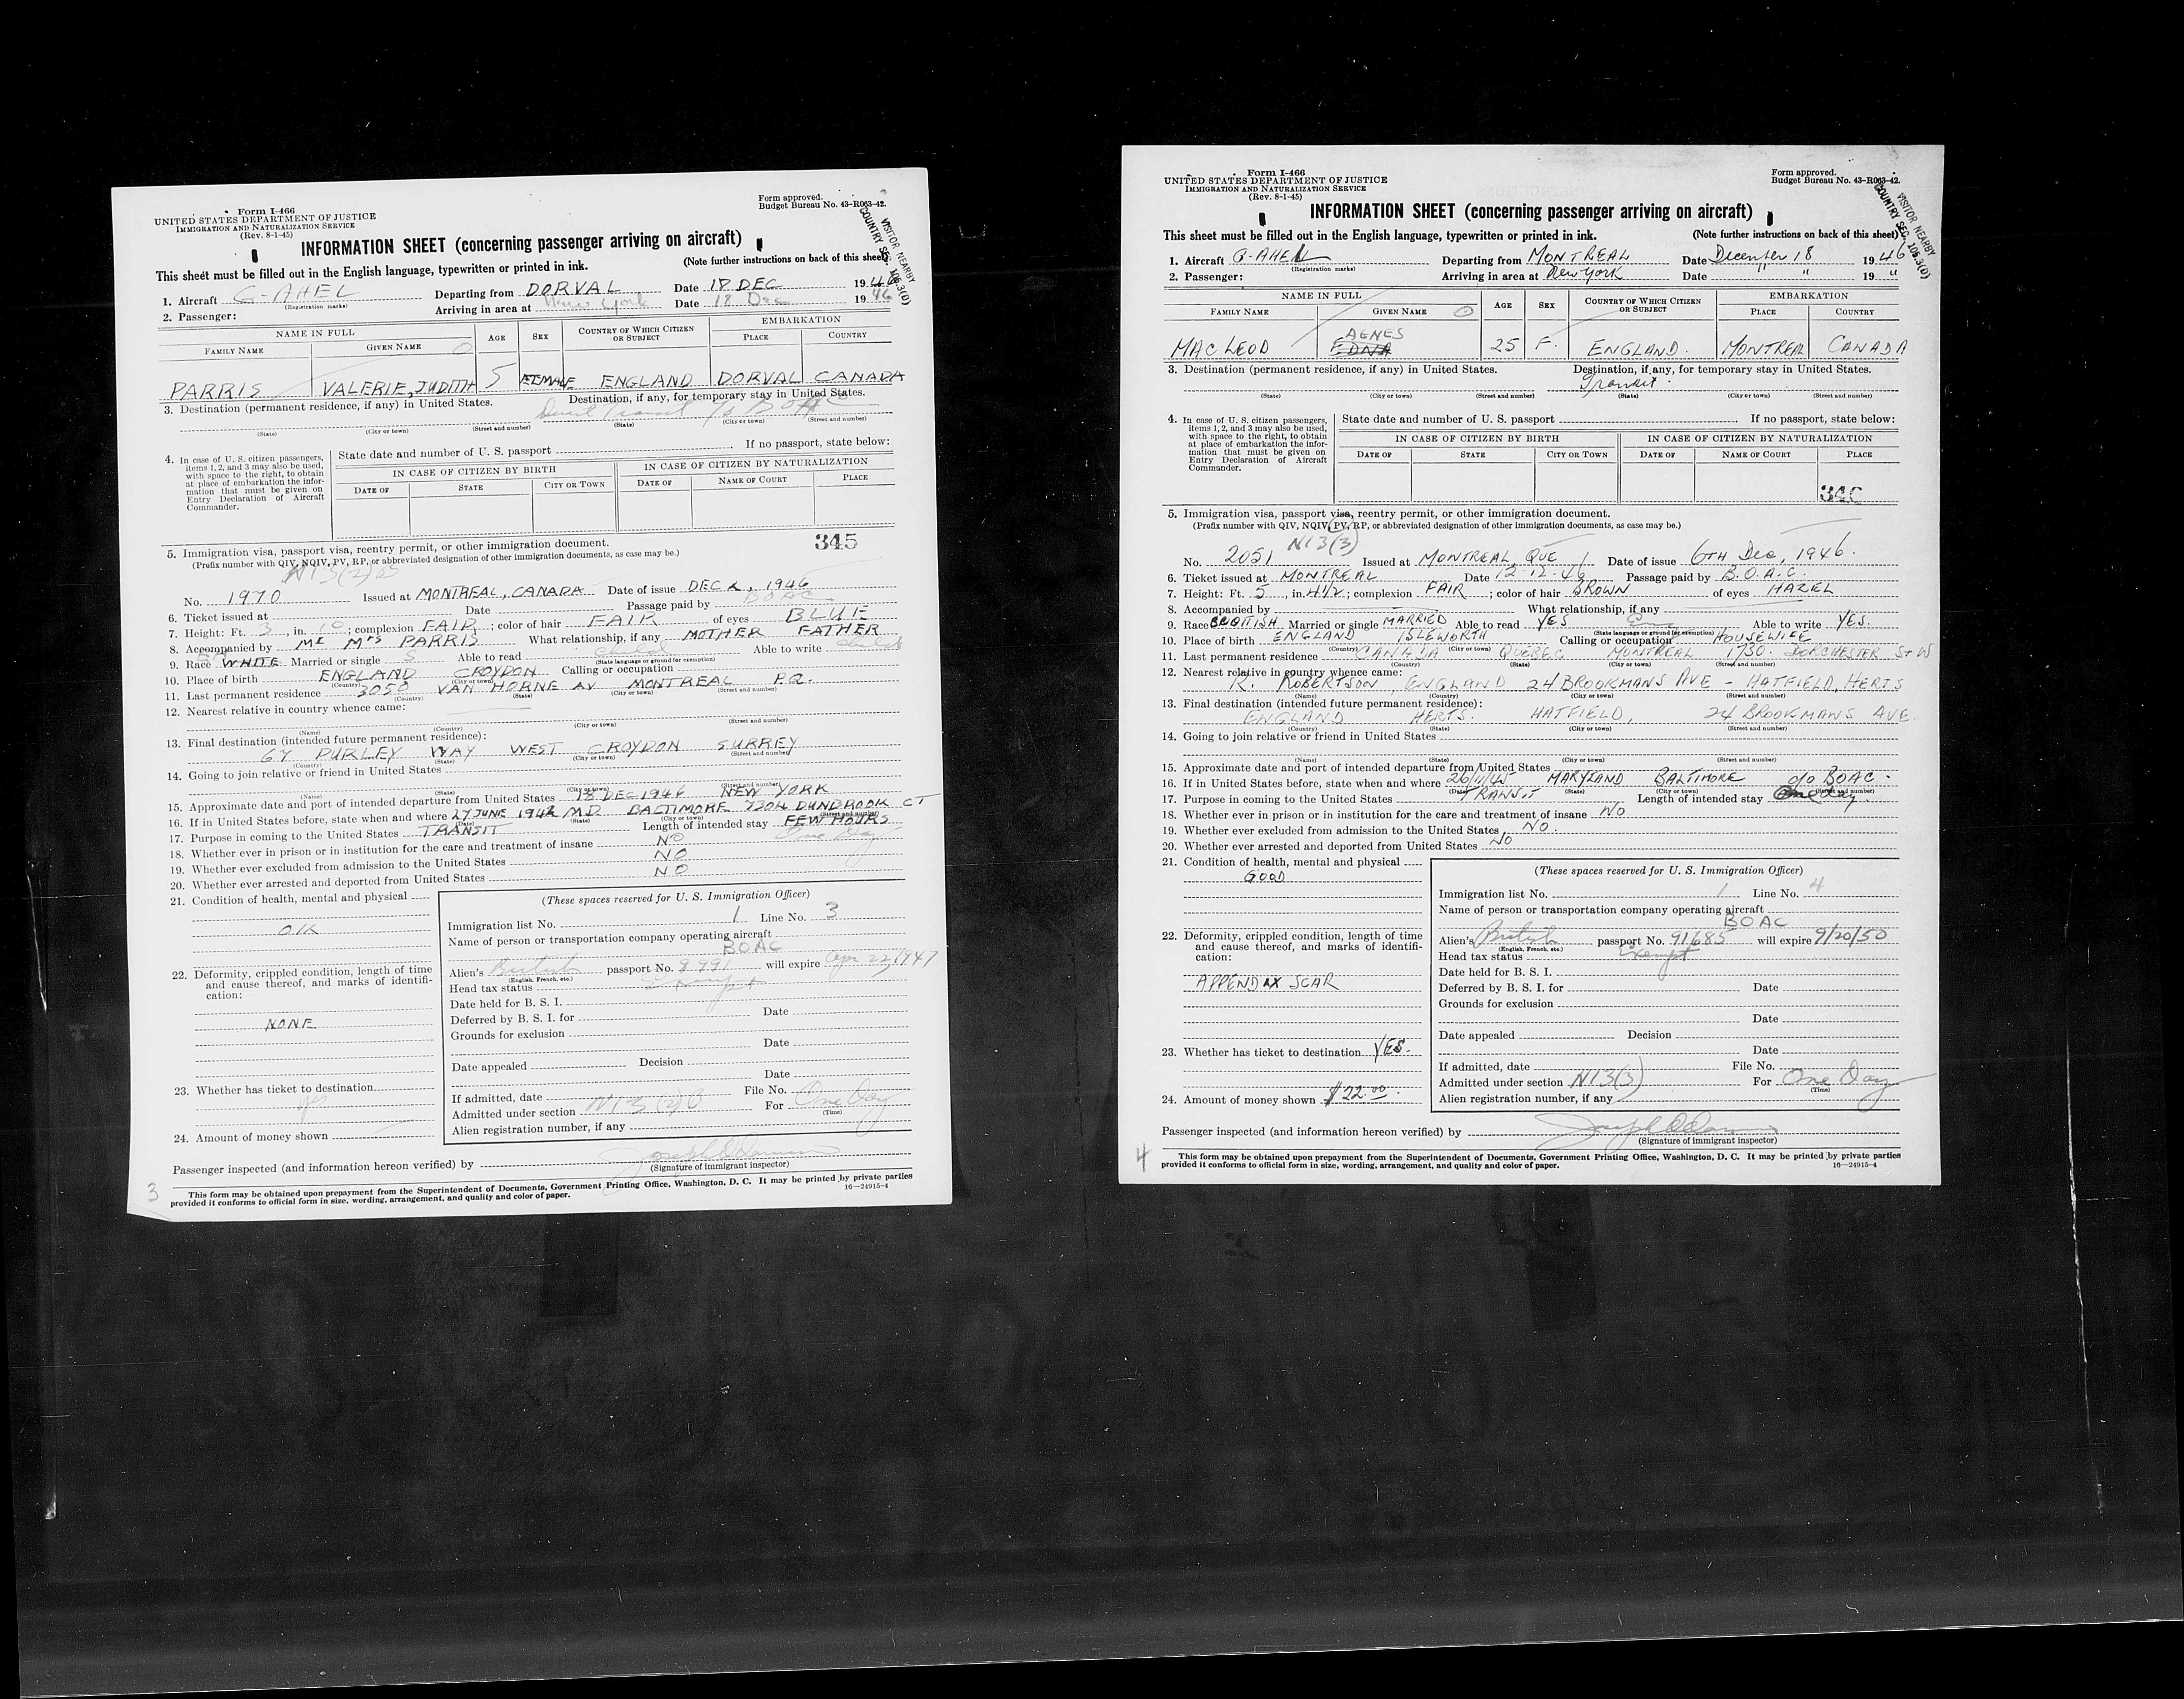 Form I-466
UNITED STATES DEPARTMENT OF JUSTICE
IMMIGRATION AND NATURALIZATION SERVICE
(Rev. 8-1-45)
Form approved.
Budget Bureau No. 43-R063-42.
VISITOR NEARBY
COUNTRY SEC. 106.3(D)
INFORMATION SHEET (concerning passenger arriving on aircraft)
This sheet must be filled out in the English language, typewritten or printed in ink.
(Note further instructions on back of this sheet)
1. Aircraft G-AHEL Departing from DORVAL Date 18 DEC 1946
(Registration marks)
2. Passenger: Arriving in area at New York Date 18 Dec 1946
NAME IN FULL AGE SEX COUNTRY OF WHICH CITIZEN OR SUBJECT EMBARKATION
FAMILY NAME GIVEN NAME PLACE COUNTRY
PARRIS VALERIE, JUDITH 5 FEMALE ENGLAND DORVAL CANADA
3. Destination (permanent residence, if any) in United States. Destination, if any, for temporary stay in United States.
Direct Transit BOAC
(State) (City or town) (Street and number) (State) (City or town) (Street and number)
4. In case of U. S. citizen passengers, items 1, 2, and 3 may also be used, with space to the right, to obtain at place of embarkation the information that must be given on Entry Declaration of Aircraft Commander.
State date and number of U. S. passport If no passport, state below:
IN CASE OF CITIZEN BY BIRTH IN CASE OF CITIZEN BY NATURALIZATION
DATE OF STATE CITY OR TOWN DATE OF NAME OF COURT PLACE
345
5. Immigration visa, passport visa, reentry permit, or other immigration document.
(Prefix number with QIV, NQIV, PV, RP, or abbreviated designation of other immigration documents, as case may be.)
No. 1970 Issued at MONTREAL, CANADA Date of issue DEC 2, 1946
6. Ticket issued at Date Passage paid by BOAC
7. Height: Ft. 3, in. 10; complexion FAIR; color of hair FAIR of eyes BLUE
8. Accompanied by Mr Mrs PARRIS What relationship, if any MOTHER FATHER
9. Race WHITE Married or single S Able to read child Able to write child
(State language or ground for exemption)
10. Place of birth ENGLAND CROYDON Calling or occupation
(Country) (City or town)
11. Last permanent residence 3050 VAN HORNE AV MONTREAL P.Q.
(Country) (State) (City or town) (Street and number)
12. Nearest relative in country whence came:
(Name) (Country) (City or town) (Street and number)
13. Final destination (intended future permanent residence):
67 PURLEY WAY WEST CROYDON SURREY
(Country) (State) (City or town) (Street and number)
14. Going to join relative or friend in United States
(Name) (State) (City or town) (Street and number)
15. Approximate date and port of intended departure from United States 18 DEC 1946 NEW YORK
16. If in United States before, state when and where 27 JUNE 1942 MD. BALTIMORE 7204 DUNDROOK CT
(Date) (State) (City or town) (Street and number)
17. Purpose in coming to the United States TRANSIT Length of intended stay FEW HOURS
One Day
18. Whether ever in prison or in institution for the care and treatment of insane NO
19. Whether ever excluded from admission to the United States NO
20. Whether ever arrested and deported from United States NO
21. Condition of health, mental and physical
O.K
22. Deformity, crippled condition, length of time and cause thereof, and marks of identification:
NONE
23. Whether has ticket to destination
yes
24. Amount of money shown
(These spaces reserved for U. S. Immigration Officer)
Immigration list No. 1 Line No. 3
Name of person or transportation company operating aircraft
BOAC
Alien's British passport No. 8991 will expire Apr 22, 1947
(English, French, etc.)
Head tax status Exempt
Date held for B. S. I.
Deferred by B. S. I. for Date
Grounds for exclusion
Date
Date appealed Decision
Date
If admitted, date File No.
Admitted under section For One Day
(Time)
Alien registration number, if any
Passenger inspected (and information hereon verified) by
(Signature of immigrant inspector)
3
This form may be obtained upon prepayment from the Superintendent of Documents, Government Printing Office, Washington, D. C. It may be printed by private parties
provided it conforms to official form in size, wording, arrangement, and quality and color of paper.
16—24915-4
Form I-466
UNITED STATES DEPARTMENT OF JUSTICE
IMMIGRATION AND NATURALIZATION SERVICE
(Rev. 8-1-45)
Form approved.
Budget Bureau No. 43-R063-42.
VISITOR NEARBY
COUNTRY SEC. 106.3(D)
INFORMATION SHEET (concerning passenger arriving on aircraft)
This sheet must be filled out in the English language, typewritten or printed in ink.
(Note further instructions on back of this sheet)
1. Aircraft G-AHEL Departing from MONTREAL Date December 18 1946
(Registration marks)
2. Passenger: Arriving in area at New York Date " " 19 "
NAME IN FULL AGE SEX COUNTRY OF WHICH CITIZEN OR SUBJECT EMBARKATION
FAMILY NAME GIVEN NAME PLACE COUNTRY
MACLEOD AGNES EDNA 25 F. ENGLAND. MONTREAL CANADA
3. Destination (permanent residence, if any) in United States. Destination, if any, for temporary stay in United States.
Transit.
(State) (City or town) (Street and number) (State) (City or town) (Street and number)
4. In case of U. S. citizen passengers, items 1, 2, and 3 may also be used, with space to the right, to obtain at place of embarkation the information that must be given on Entry Declaration of Aircraft Commander.
State date and number of U. S. passport If no passport, state below:
IN CASE OF CITIZEN BY BIRTH IN CASE OF CITIZEN BY NATURALIZATION
DATE OF STATE CITY OR TOWN DATE OF NAME OF COURT PLACE
346
5. Immigration visa, passport visa, reentry permit, or other immigration document.
(Prefix number with QIV, NQIV, PV, RP, or abbreviated designation of other immigration documents, as case may be.)
NI 3(3)
No. 2051 Issued at MONTREAL, QUE Date of issue 6TH Dec, 1946.
6. Ticket issued at MONTREAL Date 12.12.46 Passage paid by B.O.A.C.
7. Height: Ft. 5, in. 4 1/2; complexion FAIR; color of hair BROWN of eyes HAZEL
8. Accompanied by What relationship, if any
9. Race SCOTTISH Married or single MARRIED Able to read YES Eng Able to write YES.
(State language or ground for exemption)
10. Place of birth ENGLAND ISLEWORTH Calling or occupation HOUSEWIFE
(Country) (City or town)
11. Last permanent residence CANADA QUEBEC MONTREAL 1730. DORCHESTER ST W
(Country) (State) (City or town) (Street and number)
12. Nearest relative in country whence came:
R. ROBERTSON, ENGLAND 24 BROOKMANS AVE - HATFIELD, HERTS
(Name) (Country) (City or town) (Street and number)
13. Final destination (intended future permanent residence):
ENGLAND HERTS. HATFIELD, 24 BROOKMANS AVE.
(Country) (State) (City or town) (Street and number)
14. Going to join relative or friend in United States
(Name) (State) (City or town) (Street and number)
15. Approximate date and port of intended departure from United States
16. If in United States before, state when and where 26/11/45 MARYLAND BALTIMORE c/o BOAC.
(Date) (State) (City or town) (Street and number)
17. Purpose in coming to the United States TRANSIT Length of intended stay One day.
18. Whether ever in prison or in institution for the care and treatment of insane NO
19. Whether ever excluded from admission to the United States NO.
20. Whether ever arrested and deported from United States NO
21. Condition of health, mental and physical
GOOD
22. Deformity, crippled condition, length of time and cause thereof, and marks of identification:
APPENDIX SCAR
23. Whether has ticket to destination YES.
24. Amount of money shown $22.00.
(These spaces reserved for U. S. Immigration Officer)
Immigration list No. 1 Line No. 4
Name of person or transportation company operating aircraft
BOAC
Alien's British passport No. 91685 will expire 9/20/50
(English, French, etc.)
Head tax status Exempt
Date held for B. S. I.
Deferred by B. S. I. for Date
Grounds for exclusion
Date
Date appealed Decision
Date
If admitted, date File No.
Admitted under section NI 3(3) For One Day
(Time)
Alien registration number, if any
Passenger inspected (and information hereon verified) by
(Signature of immigrant inspector)
4
This form may be obtained upon prepayment from the Superintendent of Documents, Government Printing Office, Washington, D. C. It may be printed by private parties
provided it conforms to official form in size, wording, arrangement, and quality and color of paper.
16—24915-4